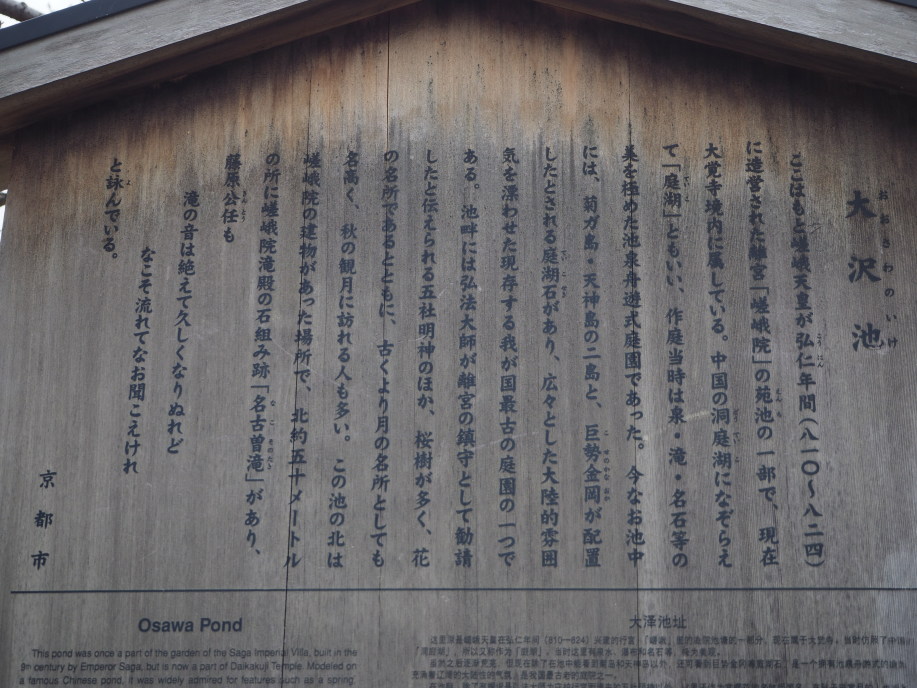 大沢池
おおさわのいけ
ここはもと嵯峨天皇が弘仁年間(八一〇〜八二四)
に造営された離宮「嵯峨院」の苑池の一部で、現在
大覚寺境内に属している。中国の洞庭湖になぞらえ
て「庭湖」ともいい、作庭当時は泉・滝・名石等の
美を極めた池泉舟遊式庭園であった。今なお池中
には、菊ガ島・天神島の二島と、巨勢金岡が配置
したとされる庭湖石があり、広々とした大陸的雰囲
気を漂わせた現存する我が国最古の庭園の一つで
ある。池畔には弘法大師が離宮の鎮守として勧請
したと伝えられる五社明神のほか、桜樹が多く、花
の名所であるとともに、古くより月の名所としても
名高く、秋の観月に訪れる人も多い。この池の北は
嵯峨院の建物があった場所で、北約五十メートル
の所に嵯峨院滝殿の石組み跡「名古曽滝」があり、
藤原公任も
滝の音は絶えて久しくなりぬれど
なこそ流れてなお聞こえけれ
と詠んでいる。
京都市
Osawa Pond
This pond was once a part of the garden of the Saga Imperial Villa, built in the
9th century by Emperor Saga, but is now a part of Daikakuji Temple. Modeled on
a famous Chinese pond, it was widely admired for features such as a spring,
大泽池址